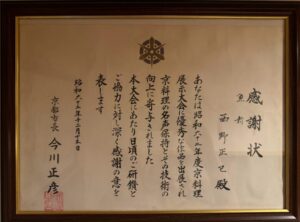 感謝状
西野正巳 殿
あなたは昭和六十二年度京料理
展示大会に優秀な作品を出展され
京料理の名声保持とその技術の
向上に寄与されました
本大会にあたり日頃のご研鑽と
ご協力に対し深く感謝の意を
表します
昭和六十二年十二月十三日
京都市長 今川正彦